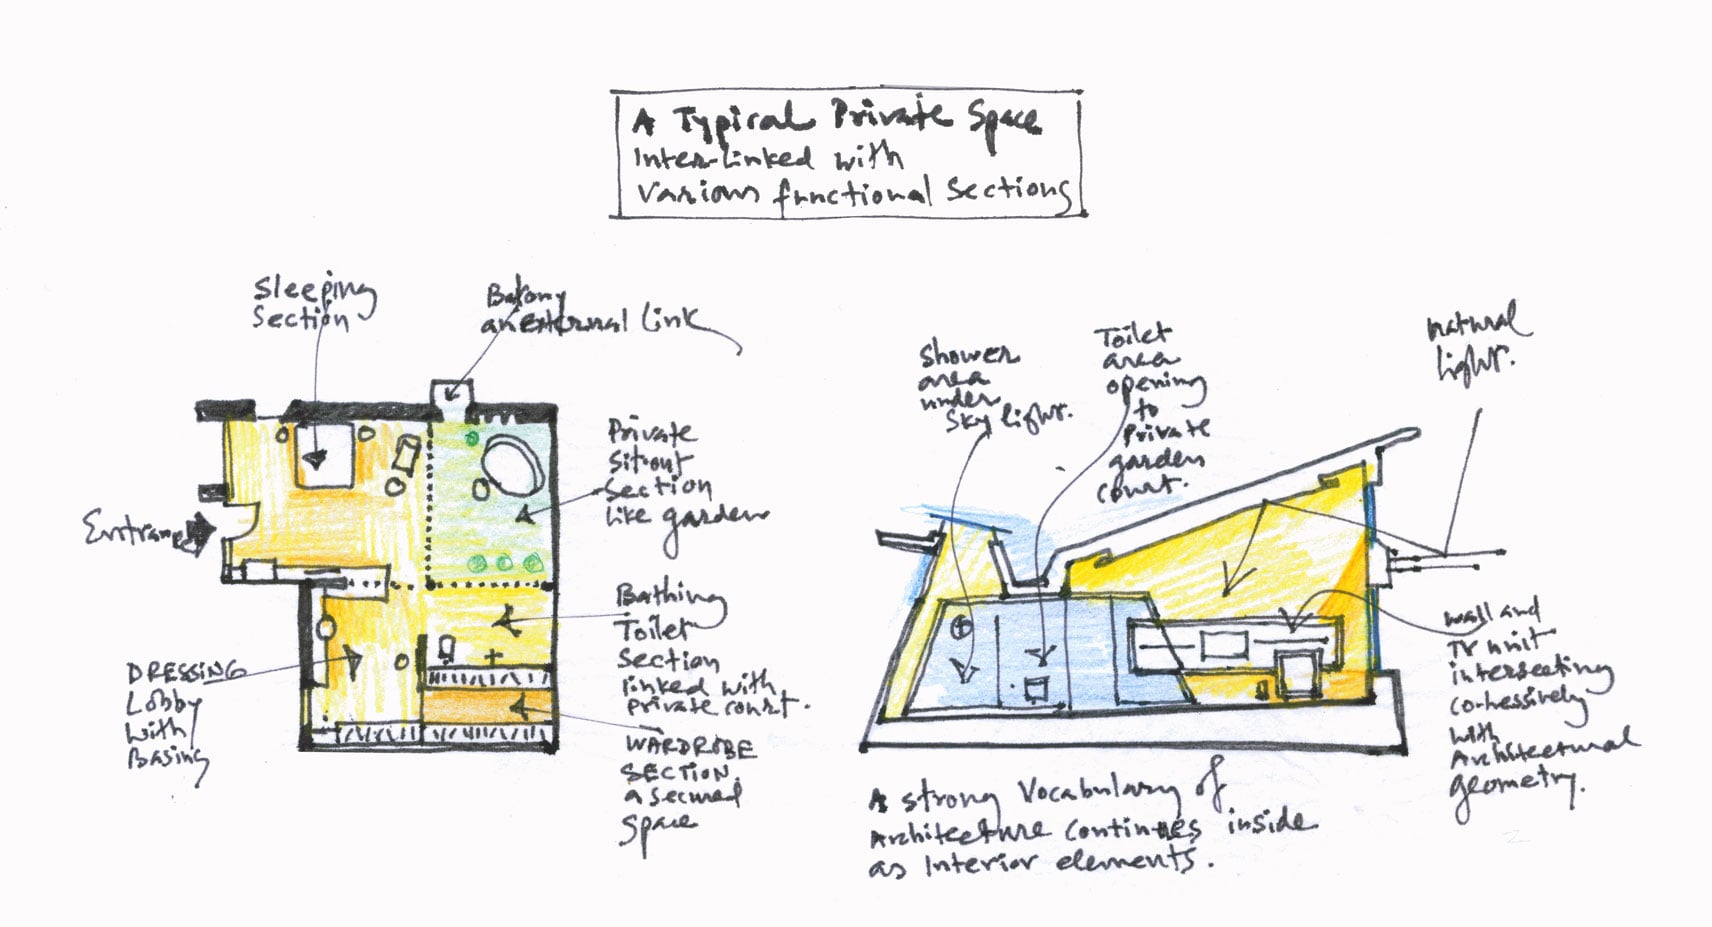 A Typical Private Space
Inter-Linked with
Various functional Sections
Sleeping
Section
Balcony
an external link
Entrance
Private
Sitout
Section
like garden
Bathing
Toilet
Section
linked with
private court.
WARDROBE
SECTION
a secured
space
DRESSING
Lobby
with
Basing
Shower
area
under
Sky light.
Toilet
area
opening
to
private
garden
court.
natural
light.
wall and
TV unit
intersecting
co-hessively
with
Architectural
geometry.
A strong Vocabulary of
Architecture continues inside
as Interior elements.